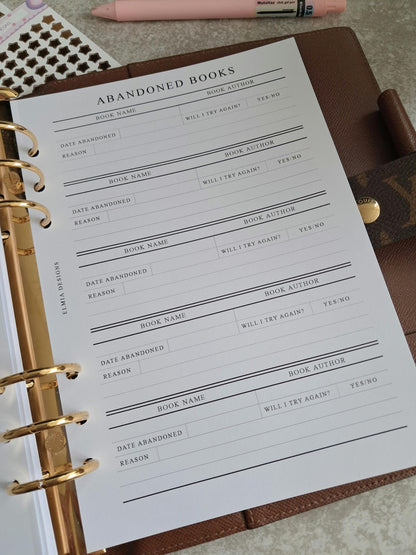 ABANDONED BOOKS
BOOK NAME BOOK AUTHOR
DATE ABANDONED WILL I TRY AGAIN? YES/NO
REASON
BOOK NAME BOOK AUTHOR
DATE ABANDONED WILL I TRY AGAIN? YES/NO
REASON
BOOK NAME BOOK AUTHOR
DATE ABANDONED WILL I TRY AGAIN? YES/NO
REASON
BOOK NAME BOOK AUTHOR
DATE ABANDONED WILL I TRY AGAIN? YES/NO
REASON
BOOK NAME BOOK AUTHOR
DATE ABANDONED WILL I TRY AGAIN? YES/NO
REASON
ELMIA DESIGNS